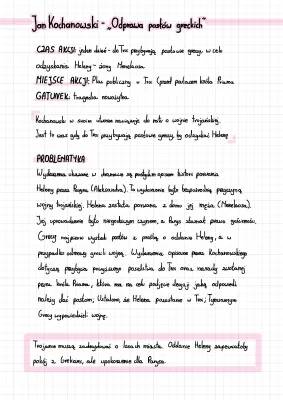 Jan Kochanowski - „Odprawa posłów greckich"
CZAS AKCJI: jeden dzień - do Troi przybywają posłowie greccy, w celu
odzyskania Heleny - żony Menelaosa.
MIEJSCE AKCJI: Plac publiczny w Troi (przed pałacem króla Priama
GATUNEK: tragedia nowożytna
Kochanowski w swoim utworze nawiązuje do mitu o wojnie trojańskiej.
Jest to czas gdy do Troi przybywają posłowie greccy, by odzyskać Helenę
PROBLEMATYKA
Wydarzenia ukazane w dramacie są poetyckim opisem historii porwania
Heleny przez Parysa (Aleksandra). To wydarzenie było bezpośrednią przyczyną
wojny trojańskiej. Helena została porwana z domu jej męża (Menelaosa).
Jej uprowadzenie było niegodziwym czynem, a Parys złamał prawo gościnności.
Grecy najpierw wysłali posłów z prośbą o oddanie Heleny, a w
przypadku odmowy grozili wojną. Wydarzenia opisane przez Kochanowskiego
dotyczą przybycia posłów do Troi oraz narady zwołanej
przez króla Priama, która ma na celu podjęcie decyzji jaką odpowiedź
należy dać posłom; Ustalono, że Helena pozostanie w Troi;
Grecy wypowiedzieli wojnę.
Trojanie muszą zadecydować o losach miasta. Oddanie Heleny zapewniłoby
pokój z Grekami, ale upokorzenie dla Parysa.